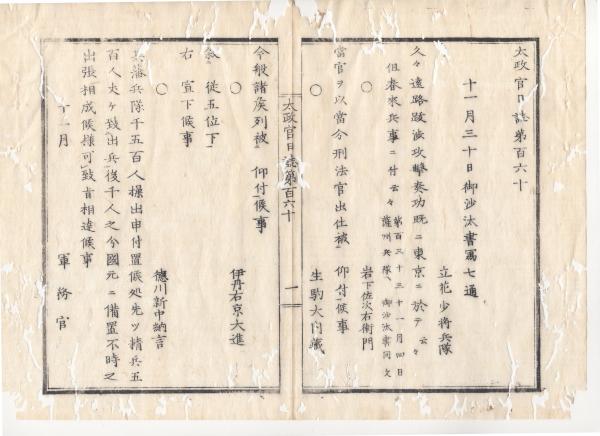 太政官日誌第百六十
十一月三十日御沙汰書寫七通
立花少将兵隊
久々遠路跋渉攻撃奏功既ニ東京ニ於テ云々
但春來兵事ニ付云々
第百三十三十一月四日
薩州兵隊ヘ御沙汰書同文
○
岩下佐次右衛門
當官ヲ以當今刑法官出仕被 仰付候事
○
生駒大内蔵
太政官日誌第百六十
一
今般諸侯列被 仰付候事
○
伊丹右京大進
敘 從五位下
右 宣下候事
○
德川新中納言
其藩兵隊千五百人操出申付置候処先ツ精兵五
百人丈ケ致出兵後千人之分國元ニ備置不時之
出張相成候様可致旨相達候事
十一月
軍務官